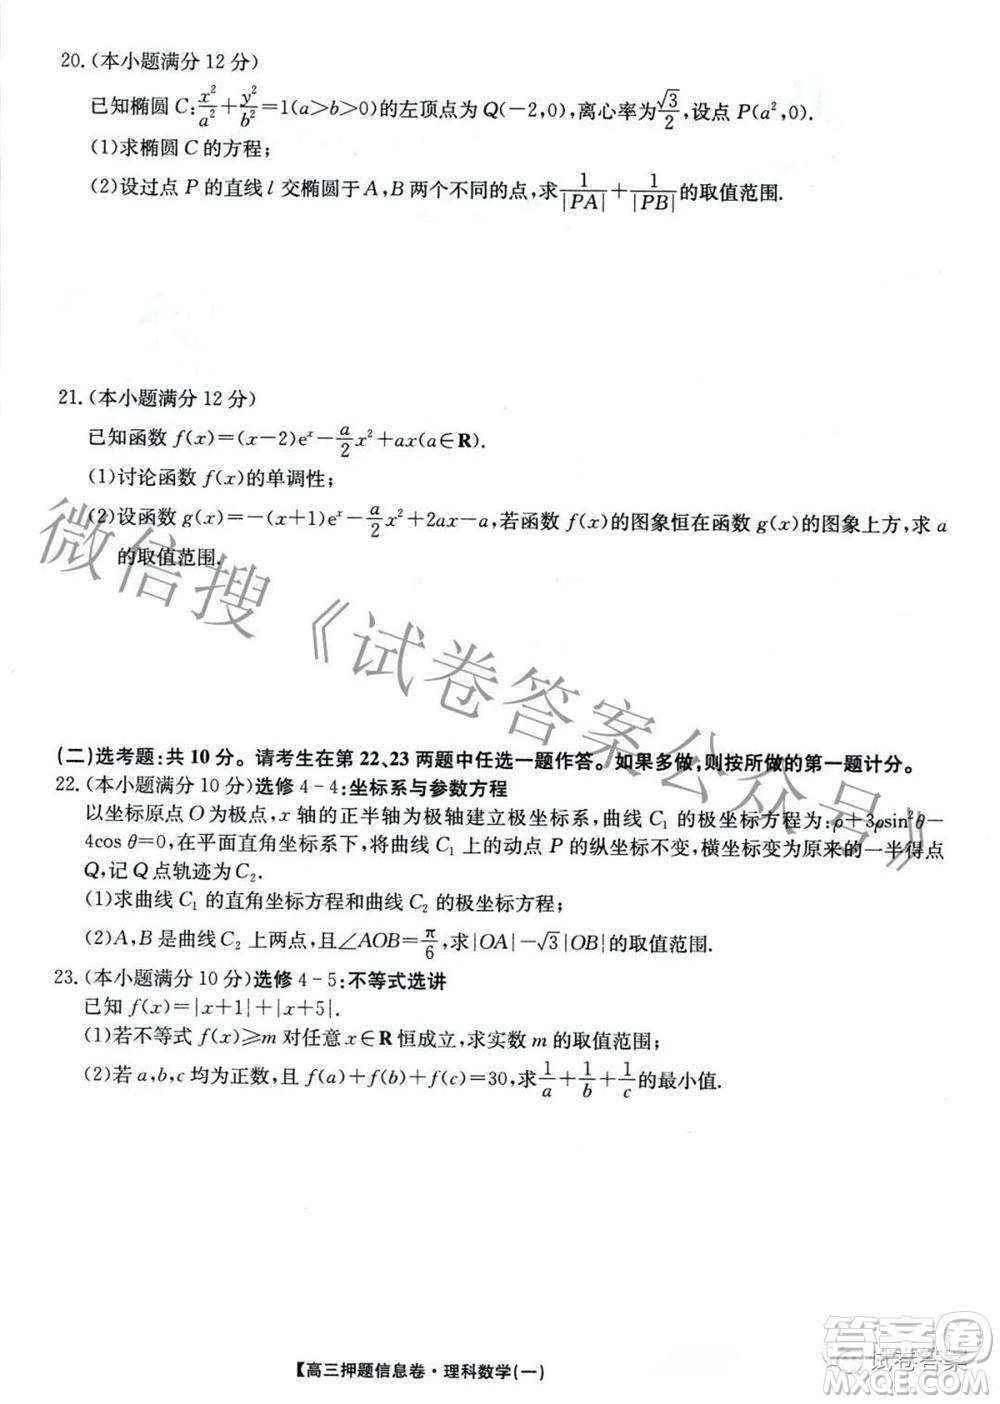 20.(本小题满分12分)
已知椭圆C:x²/a²+y²/b²=1(a>b>0)的左顶点为Q(-2,0),离心率为√3/2,设点P(a²,0).
(1)求椭圆C的方程;
(2)设过点P的直线l交椭圆于A,B两个不同的点,求1/|PA|+1/|PB|的取值范围.
21.(本小题满分12分)
已知函数f(x)=(x-2)eˣ-a/2x²+ax(a∈R).
(1)讨论函数f(x)的单调性;
(2)设函数g(x)=-(x+1)eˣ-a/2x²+2ax-a,若函数f(x)的图象恒在函数g(x)的图象上方,求a
的取值范围.
(二)选考题:共10分。请考生在第22、23两题中任选一题作答。如果多做,则按所做的第一题计分。
22.(本小题满分10分)选修4-4:坐标系与参数方程
以坐标原点O为极点,x轴的正半轴为极轴建立极坐标系,曲线C₁的极坐标方程为:ρ+3ρsin²θ-
4cosθ=0,在平面直角坐标系下,将曲线C₁上的动点P的纵坐标不变,横坐标变为原来的一半得点
Q,记Q点轨迹为C₂.
(1)求曲线C₁的直角坐标方程和曲线C₂的极坐标方程;
(2)A,B是曲线C₂上两点,且∠AOB=π/6,求|OA|-√3|OB|的取值范围.
23.(本小题满分10分)选修4-5:不等式选讲
已知f(x)=|x+1|+|x+5|.
(1)若不等式f(x)≥m对任意x∈R恒成立,求实数m的取值范围;
(2)若a,b,c均为正数,且f(a)+f(b)+f(c)=30,求1/a+1/b+1/c的最小值.
【高三押题信息卷·理科数学(一)
微信搜《试卷答案公众号》
答案圈
试卷答案
MXQE.COM